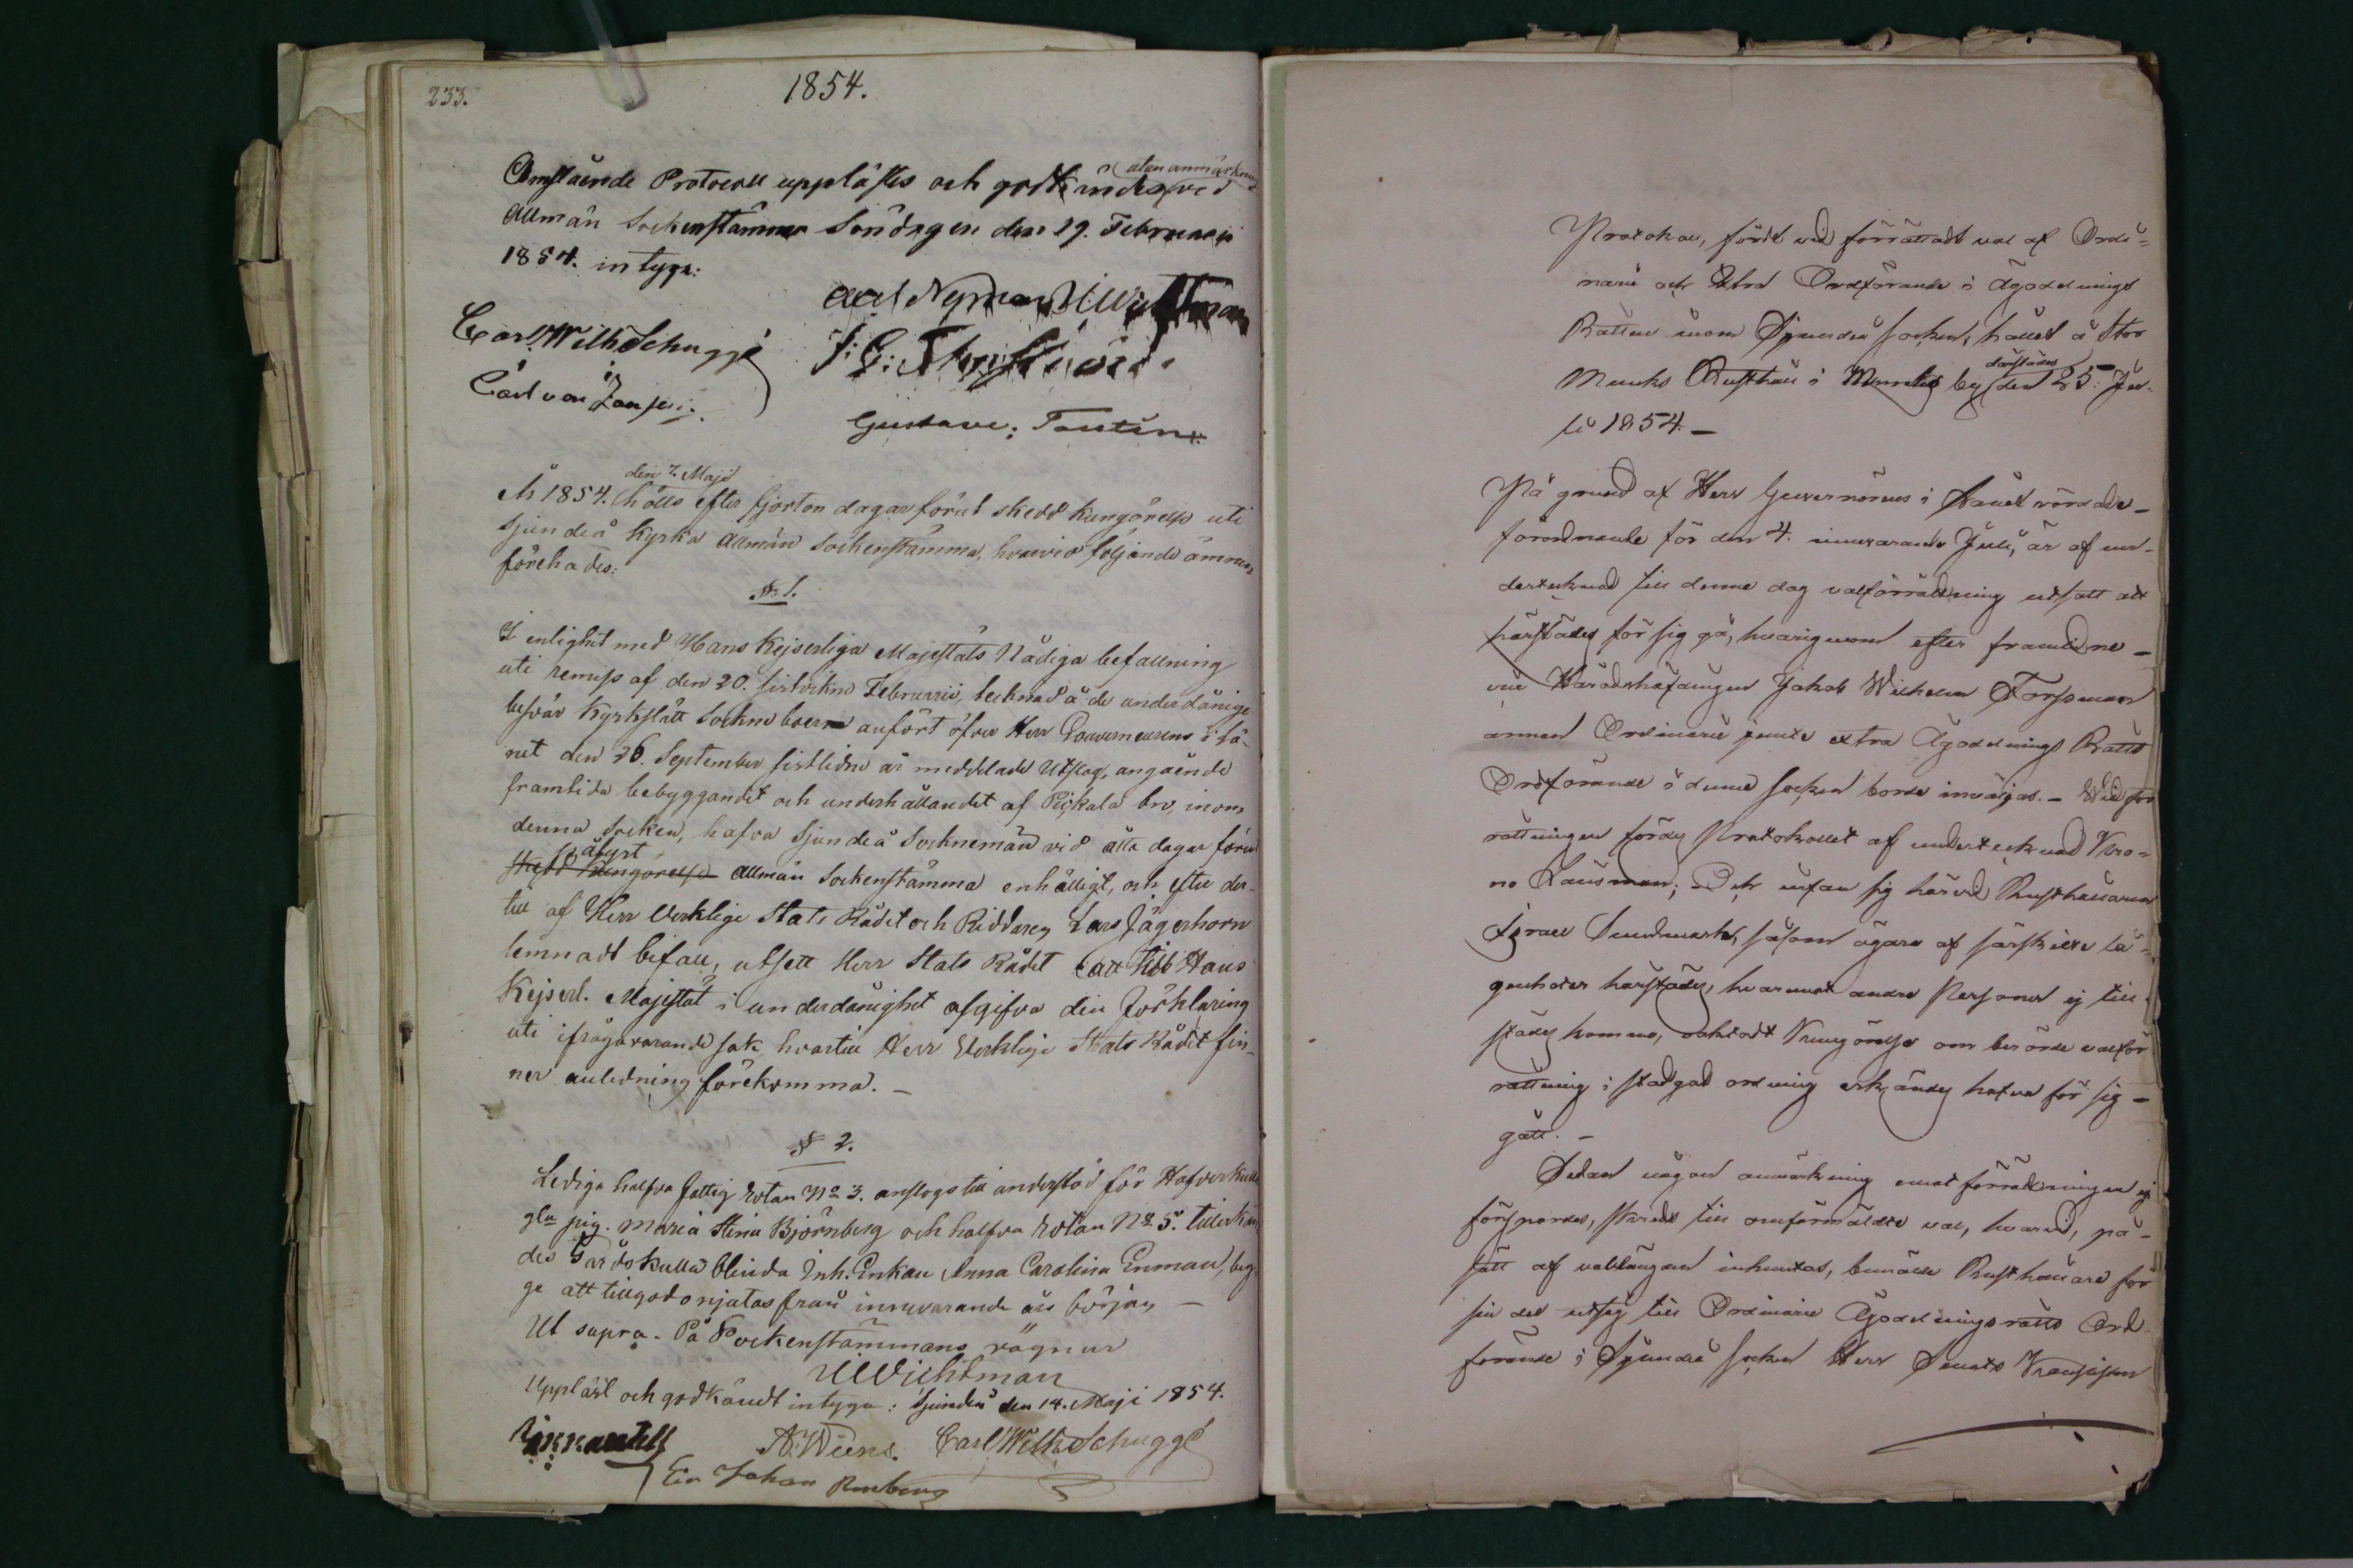 233.
1854.
Omstående Protocoll upplästes och godkändes utan anmärkning vid
Allmän Sockenstämma Söndagen den 19. Februarii
1854. intyga:
Axel Nyman UWichtman
Carl Wilh Schuggé
Carl von Jansen.
Gustave: Tautin
År 1854. den 7. Maji hölls efter fjorton dagar förut skedd kungörelse uti
Sjundeå Kyrka Allmän Sockenstämma, hvarvid följande ämnen
förehades:
§ 1.
I enlighet med Hans Kejserliga Majestäts Nådiga befallning
uti remiss af den 20. sistvikne Februarii, tecknad å de underdånige
besvär Kyrkslätt Sockneboern anfört öfver Herr Gouverneurens i Lä-
net den 26. September sistlidne år meddelade Utslag, angående
framtida bebyggandet och underhållandet af Pickala bro, inom
denna Socken, hafva Sjundeå Socknemän vid åtta dagar förut
skedd kungörelse pålyst Allmän Sockenstämma enhälligt, och efter der-
till af Herr Verklige Stats Rådet och Riddaren Lars Jägerhorn
lemnadt bifall, utsett Herr Stats Rådet att till Hans
Kejserl. Majestät i underdånighet afgifva den förklaring
uti ifrågavarande sak, hvartill Herr Verklige Stats Rådet fin-
ner anledning förekomma. -
§ 2.
Lediga halfva fattig Rotan No 3. anslogs till understöd för Hafverkulla
gla pig. Maria Stina Björnberg och halfva Rotan No 5. tillerkän
des Gårdskulla blinda Inh. Enkan Anna Carolina Enman, beg-
ge att tillgodonjutas från innevarande års början -
Ut supra. På Sockenstämmans vägnar
UWichtman
Uppläst och godkändt intyga: Sjundeå den 14. Maji 1854.
A: Wiens. Carl Wilh Schuggé
Johan
Protokoll, fördt vid förrättadt val af Ordi-
narie och Extra Ordförande i Ägodelnings
Rätten inom Sjundeå socken, hållet å Stor
Munks Rusthåll i Munks by därstädes den 25. Ju-
li 1854. -
På grund af Herr Guvernörens i Länet vördade
förordnande för den 4. innevarande Juli, är af un-
dertecknad till denne dag valförrättning utsatt att
härstädes för sig gå, hvarigenom efter framlidne
vice Häradshöfdingen Jakob Wilhelm Forssman
annan Ordinarie jemte extra Ägodelnings Rätts
Ordförande i denna socken borde inväljas. - Vid för
rättningen fördes Protokollet af undertecknad Kro-
no Länsman; Och infann sig härvid Rusthållaren
Israel Sundmark, såsom ägare af särskilte lä-
genheter härstädes, hvaremot andre Personer ej till
städes kommo, oaktadt Kungörelse om berörde valför
rättning i stadgad ordning erkändes hafva för sig
gått. -
Sedan någon anmärkning emot förrättningen ej
försports, skreds till omförmäldte val, hvarvid, på
sätt af vallängden inhemtas, bemälde Rusthållare för
sin del utsåg till Ordinarie Ägodelningsrätts Ord
förande i Sjundeå socken Herr Senats Kanslisten